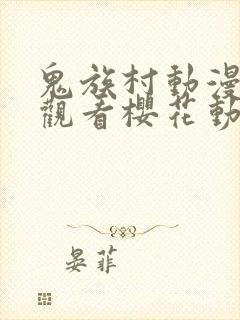 鬼族村動漫
觀看櫻花動
晏菲